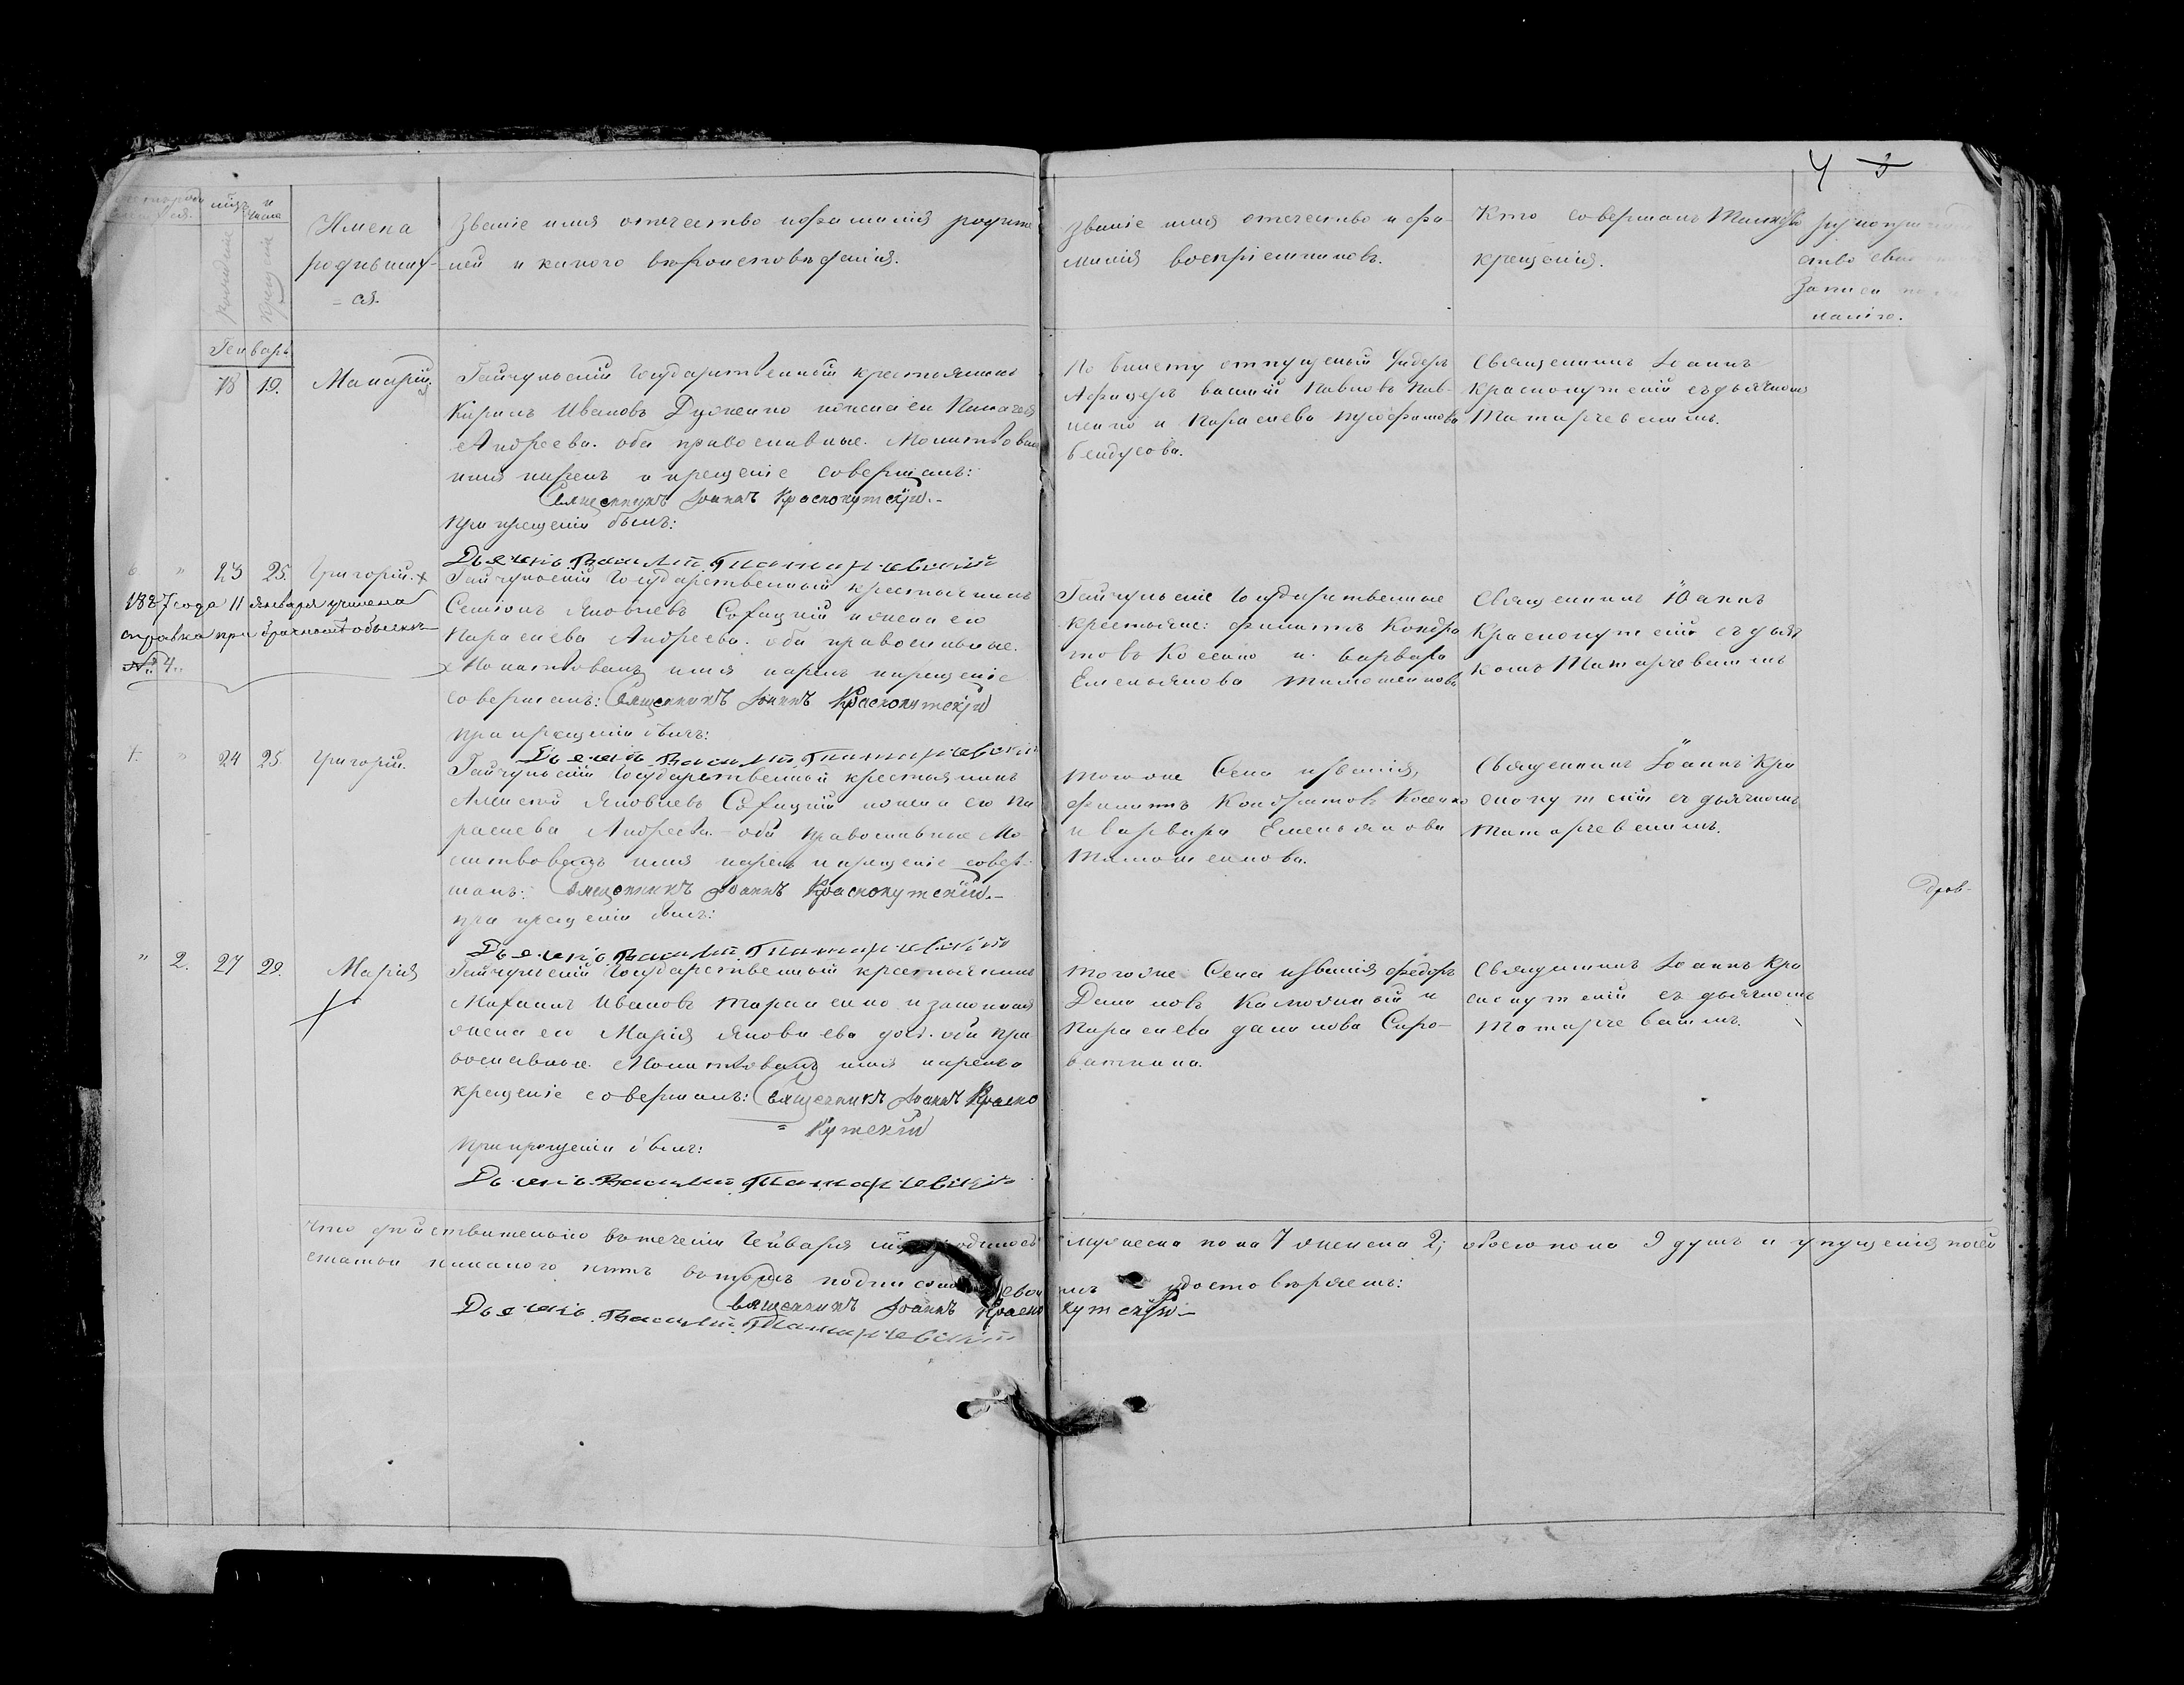 4 3
мѣсяцъ и число
Имена
родивших-
=ся.
Званіе имя отчество и фамилія родите
лей и какого вѣроисповѣданія.
Званіе имя отчество и фа-
милія воспріемниковъ.
Кто совершалъ Таинство
крещенія.
рукоприклад
ство свидѣ
записи по же
ланію.
рожденіе
крещеніе
Генварь
18 19. Макарій
Гайчульскій Государственный крестьянинъ
Кирилъ Ивановъ и жена ея Пелагея
Андреева. оба православные. Молитвовалъ
имя нарекъ и крещеніе совершалъ:
Священникъ Іоаннъ Краснокутскій.-
При крещеніи былъ:
Дьячекъ Василій Татарчевскій
По билету отпущеный Ундеръ
Афицеръ Василій Павловъ Пав-
ленко и Параскева Трофимова
Бендусова.
Священникъ Іоаннъ
Краснокутскій съ дьячкомъ
Татарчевскимъ.
6 " 23 25. Григорій. х
1887 года 11 Января учинена
справка при брачномъ обыскѣ
№ 4.
Гайчульскій Государственный крестьянинъ
Семіонъ Яковлевъ жена его
Параскева Андреева. оба православные.
Молитвовалъ имя нарекъ и крещеніе
совершалъ: Священникъ Іоаннъ Краснокутскій
при крещеніи былъ:
Дьячекъ Василій Татарчевскій
Гайчульскіе Государственные
крестьяне: Филиппъ Кондра
товъ Косенко и Варвара
Емельянова Тимошенкова
Священникъ Іоаннъ
Краснокутскій съ дьяч
комъ Татарчевскимъ
7. " 24 25. Григорій.
Гайчульскій Государственный крестьянинъ
Алексѣй Яковлевъ жена его Па
раскева Андреева оба православные Мо-
литвовалъ имя нарекъ и крещеніе совер-
шалъ: Священникъ Іоаннъ Краснокутскій.-
при крещеніи былъ:
Дьячекъ Василій Татарчевскій
Того же Села
Филиппъ Кондратовъ Косенко
и Варвара Емельянова
Тимошенкова.
Священникъ Іоаннъ Кра
снокутскій съ дьячкомъ
Татарчевскимъ.
" 2. 27 29. Марія
Гайчульскій Государственный крестьянинъ
Ивановъ и законная
жена его Марія Яковлева оба пра
вославные. Молитвовалъ имя нарекъ и
крещеніе совершалъ: Священникъ Іоаннъ Красно
= Кутскій
При крещеніи былъ:
Дьячекъ Василій Татарчевскій
Того же Села Федоръ
и
Параскева Данилова Сиро-
ваткина.
Священникъ Іоаннъ Кра
снокутскій съ дьячкомъ
Татарчевскимъ.
Что дѣйствительно въ теченіи Генваря родилось мужеска пола 7 женска 2; обоего пола 9 душъ и упущенія по сей
статьи никакого нѣтъ въ томъ подписомъ своимъ удостовѣряемъ:
Священникъ Іоаннъ Краснокутскій.-
Дьячекъ Василій Татарчевскій